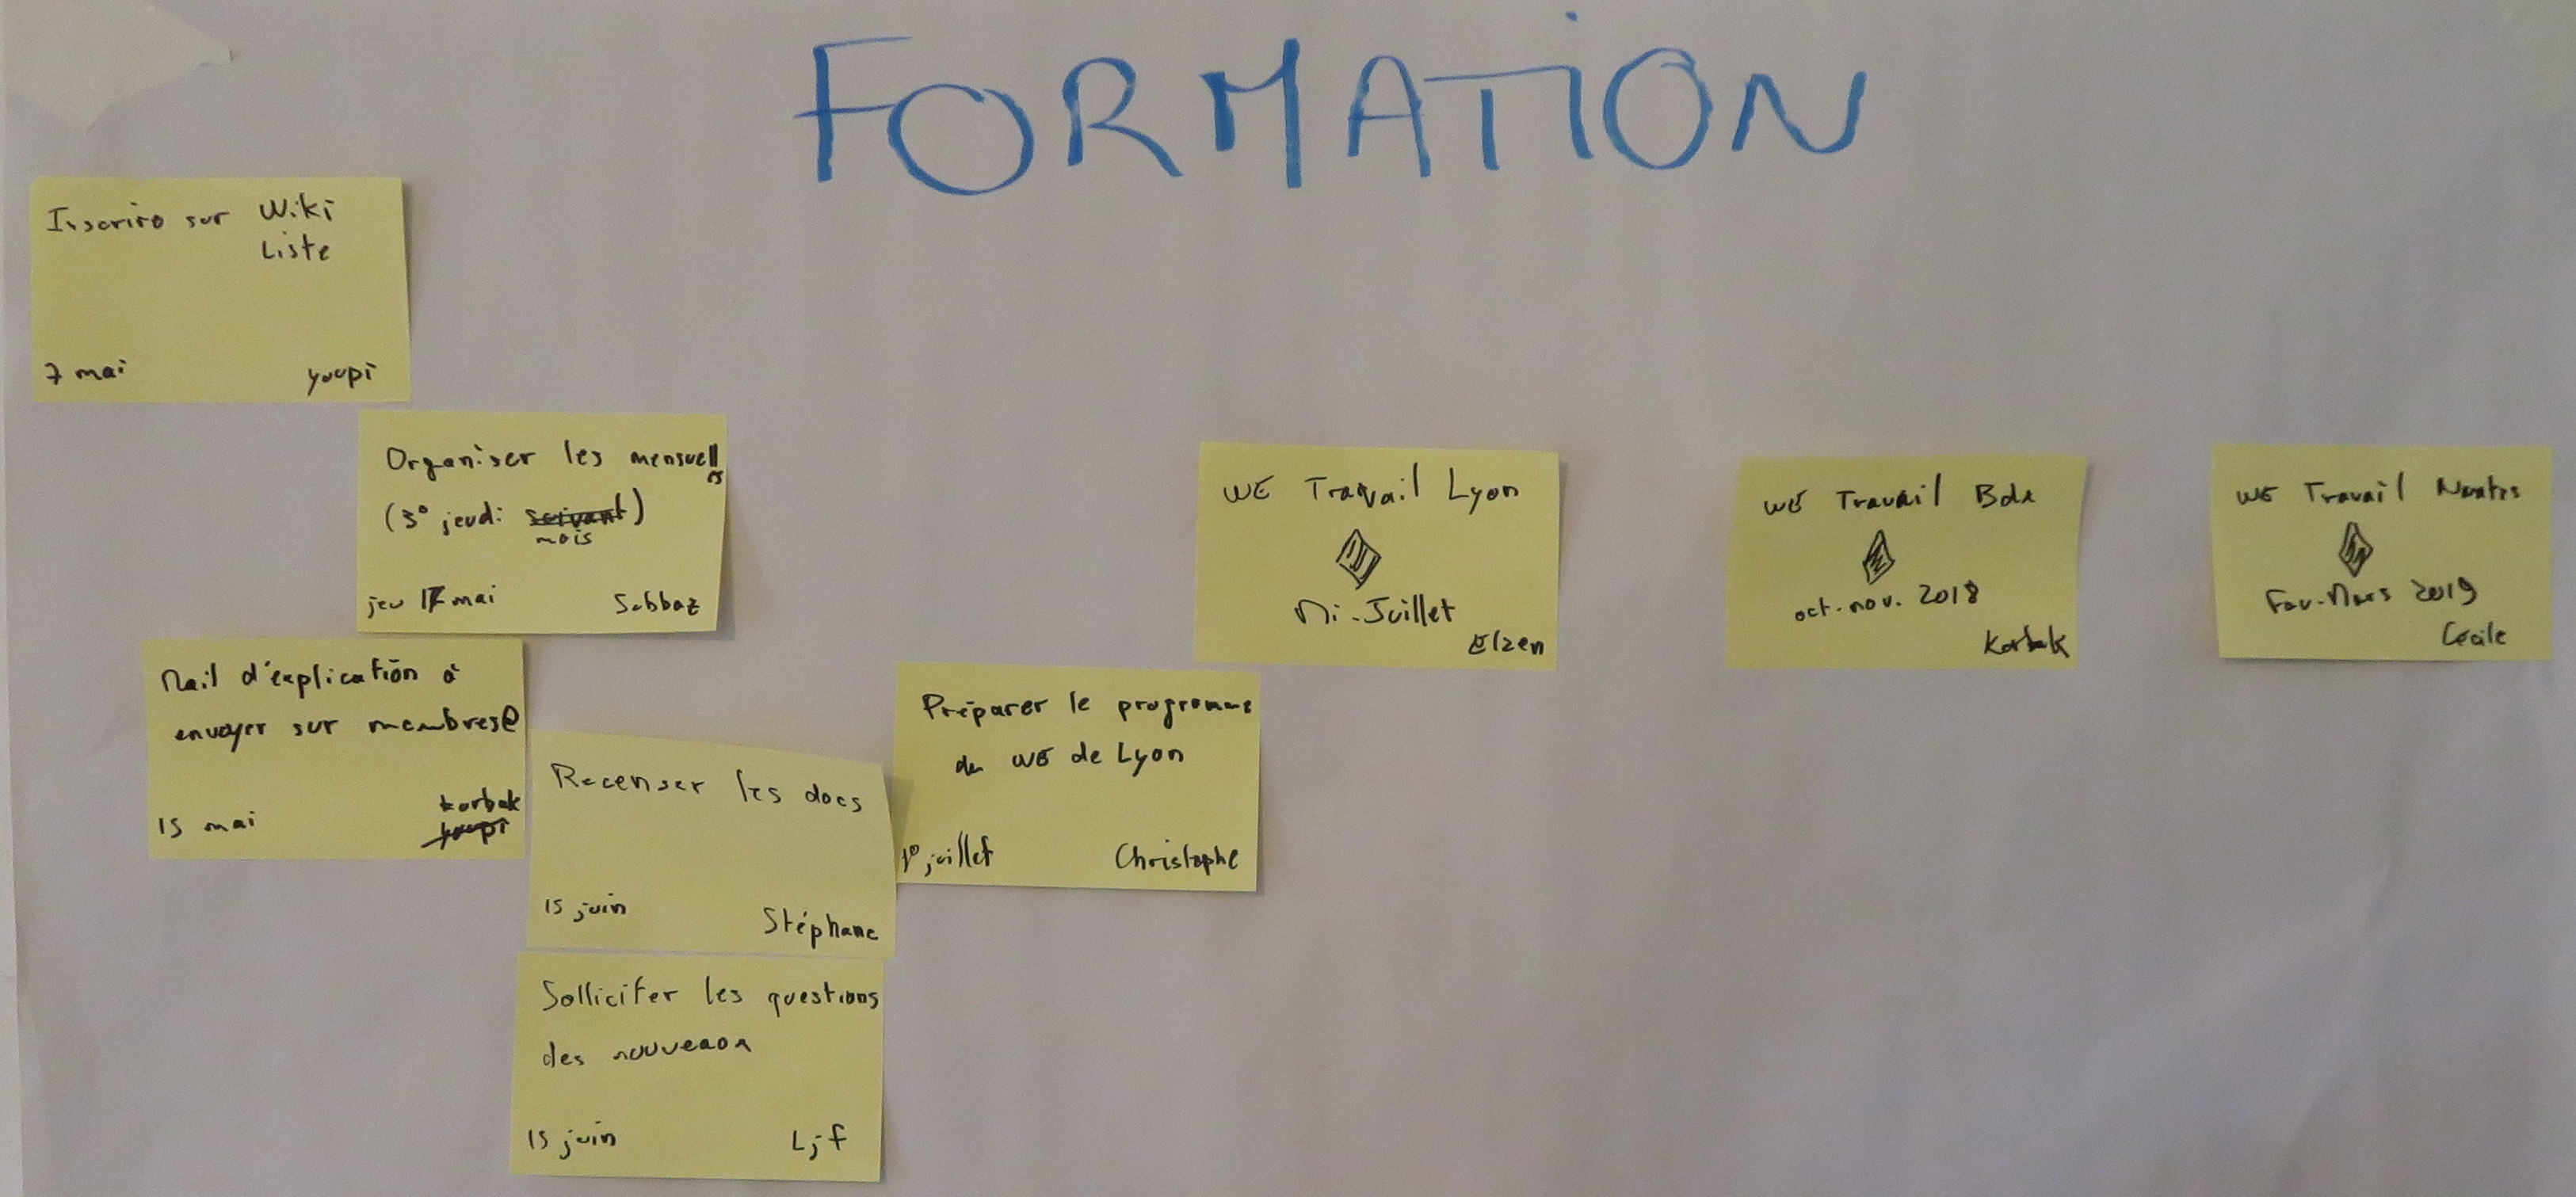 FORMATION
Inscrire sur Wiki
Liste
7 mai
youpi
Organiser les mensuelles
(3° jeudi suivant)
mois
jeu 17 mai
Sabbaz
Mail d'explication à
envoyer sur membres@
15 mai
korbak
youpi
Recenser les docs
15 juin
Stéphane
Solliciter les questions
des nouveaux
15 juin
Ljf
Préparer le programme
du WE de Lyon
1° juillet
Christophe
WE Travail Lyon
Mi-Juillet
Elzen
WE Travail Bdx
oct-nov. 2018
Korbak
WE Travail Nantes
Fev-Mars 2019
Cécile